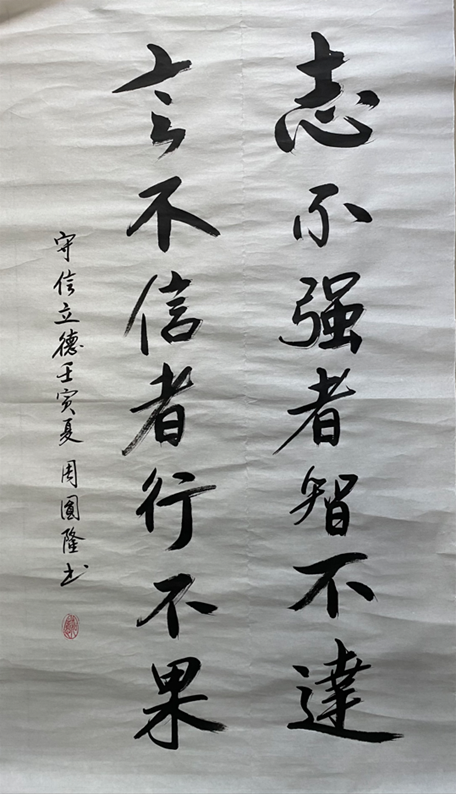 志不强者智不達
言不信者行不果
守信立德壬寅夏周圆隆书